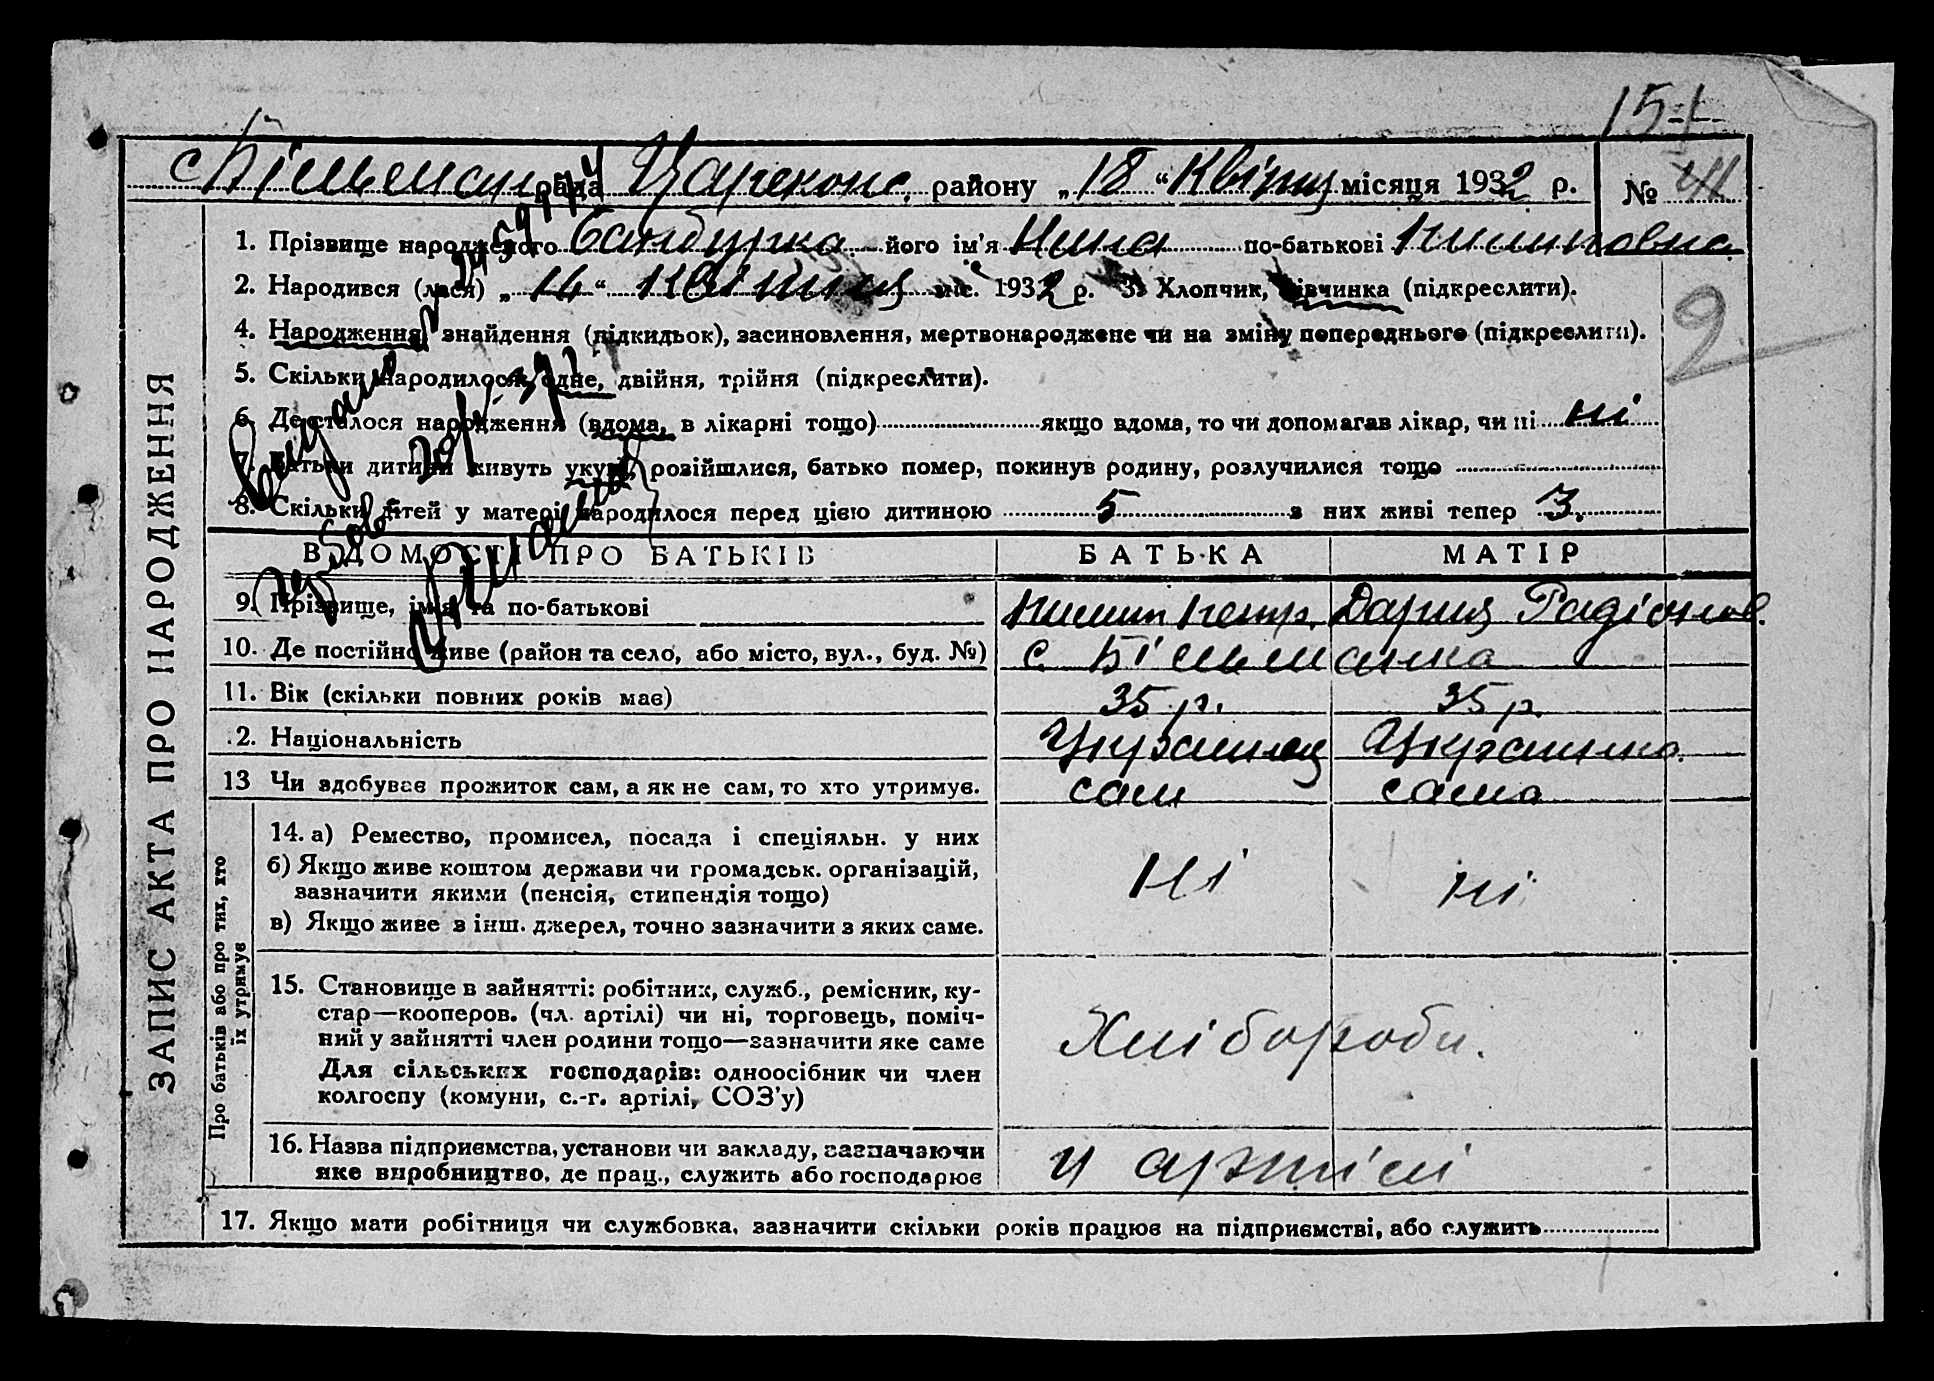 151
с Більманс рада Царекон. району „18“ Квітня місяця 1932 р. № 41
1. Прізвище народженого його ім'я Нина по-батькові
2. Народився (лася) „14“ Квітня міс. 1932 р. 3. Хлопчик, дівчинка (підкреслити).
2
4. Народження, знайдення (підкидьок), засиновлення, мертвонароджене чи на зміну попереднього (підкреслити).
5. Скільки народилося: одне, двійня, трійня (підкреслити).
6. Де сталося народження (вдома, в лікарні тощо) якщо вдома, то чи допомагав лікар, чи ні ні
7. Батьки дитини живуть укупі, розійшлися, батько помер, покинув родину, розлучилися тощо
8. Скільки дітей у матері народилося перед цією дитиною 5 з них живі тепер 3.
ЗАПИС АКТА ПРО НАРОДЖЕННЯ
ВІДОМОСТІ ПРО БАТЬКІВ БАТЬКА МАТІР
9. Прізвище, ім'я та по-батькові Петр. Дария Радіонов.
10. Де постійно живе (район та село, або місто, вул., буд. №) с. Більманка
11. Вік (скільки повних років має) 35 р. 35 р.
.2. Національність Украинец Украинка
13 Чи здобуває прожиток сам, а як не сам, то хто утримує. сам сама
Про батьків або про тих, хто їх утримує
14. а) Ремество, промисел, посада і спеціяльн. у них
б) Якщо живе коштом держави чи громадськ. організацій,
зазначити якими (пенсія, стипендія тощо)
ні ні
в) Якщо живе з інш. джерел, точно зазначити з яких саме.
15. Становище в зайнятті: робітник, служб., ремісник, ку-
стар—кооперов. (чл. артілі) чи ні, торговець, поміч-
ний у зайнятті член родини тощо—зазначити яке саме
Хлібороби.
Для сільських господарів: одноосібник чи член
колгоспу (комуни, с.-г. артілі, СОЗ'у)
16. Назва підприємства, установи чи закладу, зазначаючи
яке виробництво, де прац., служить або господарює
у артілі
17. Якщо мати робітниця чи службовка, зазначити скільки років працює на підприємстві, або служить